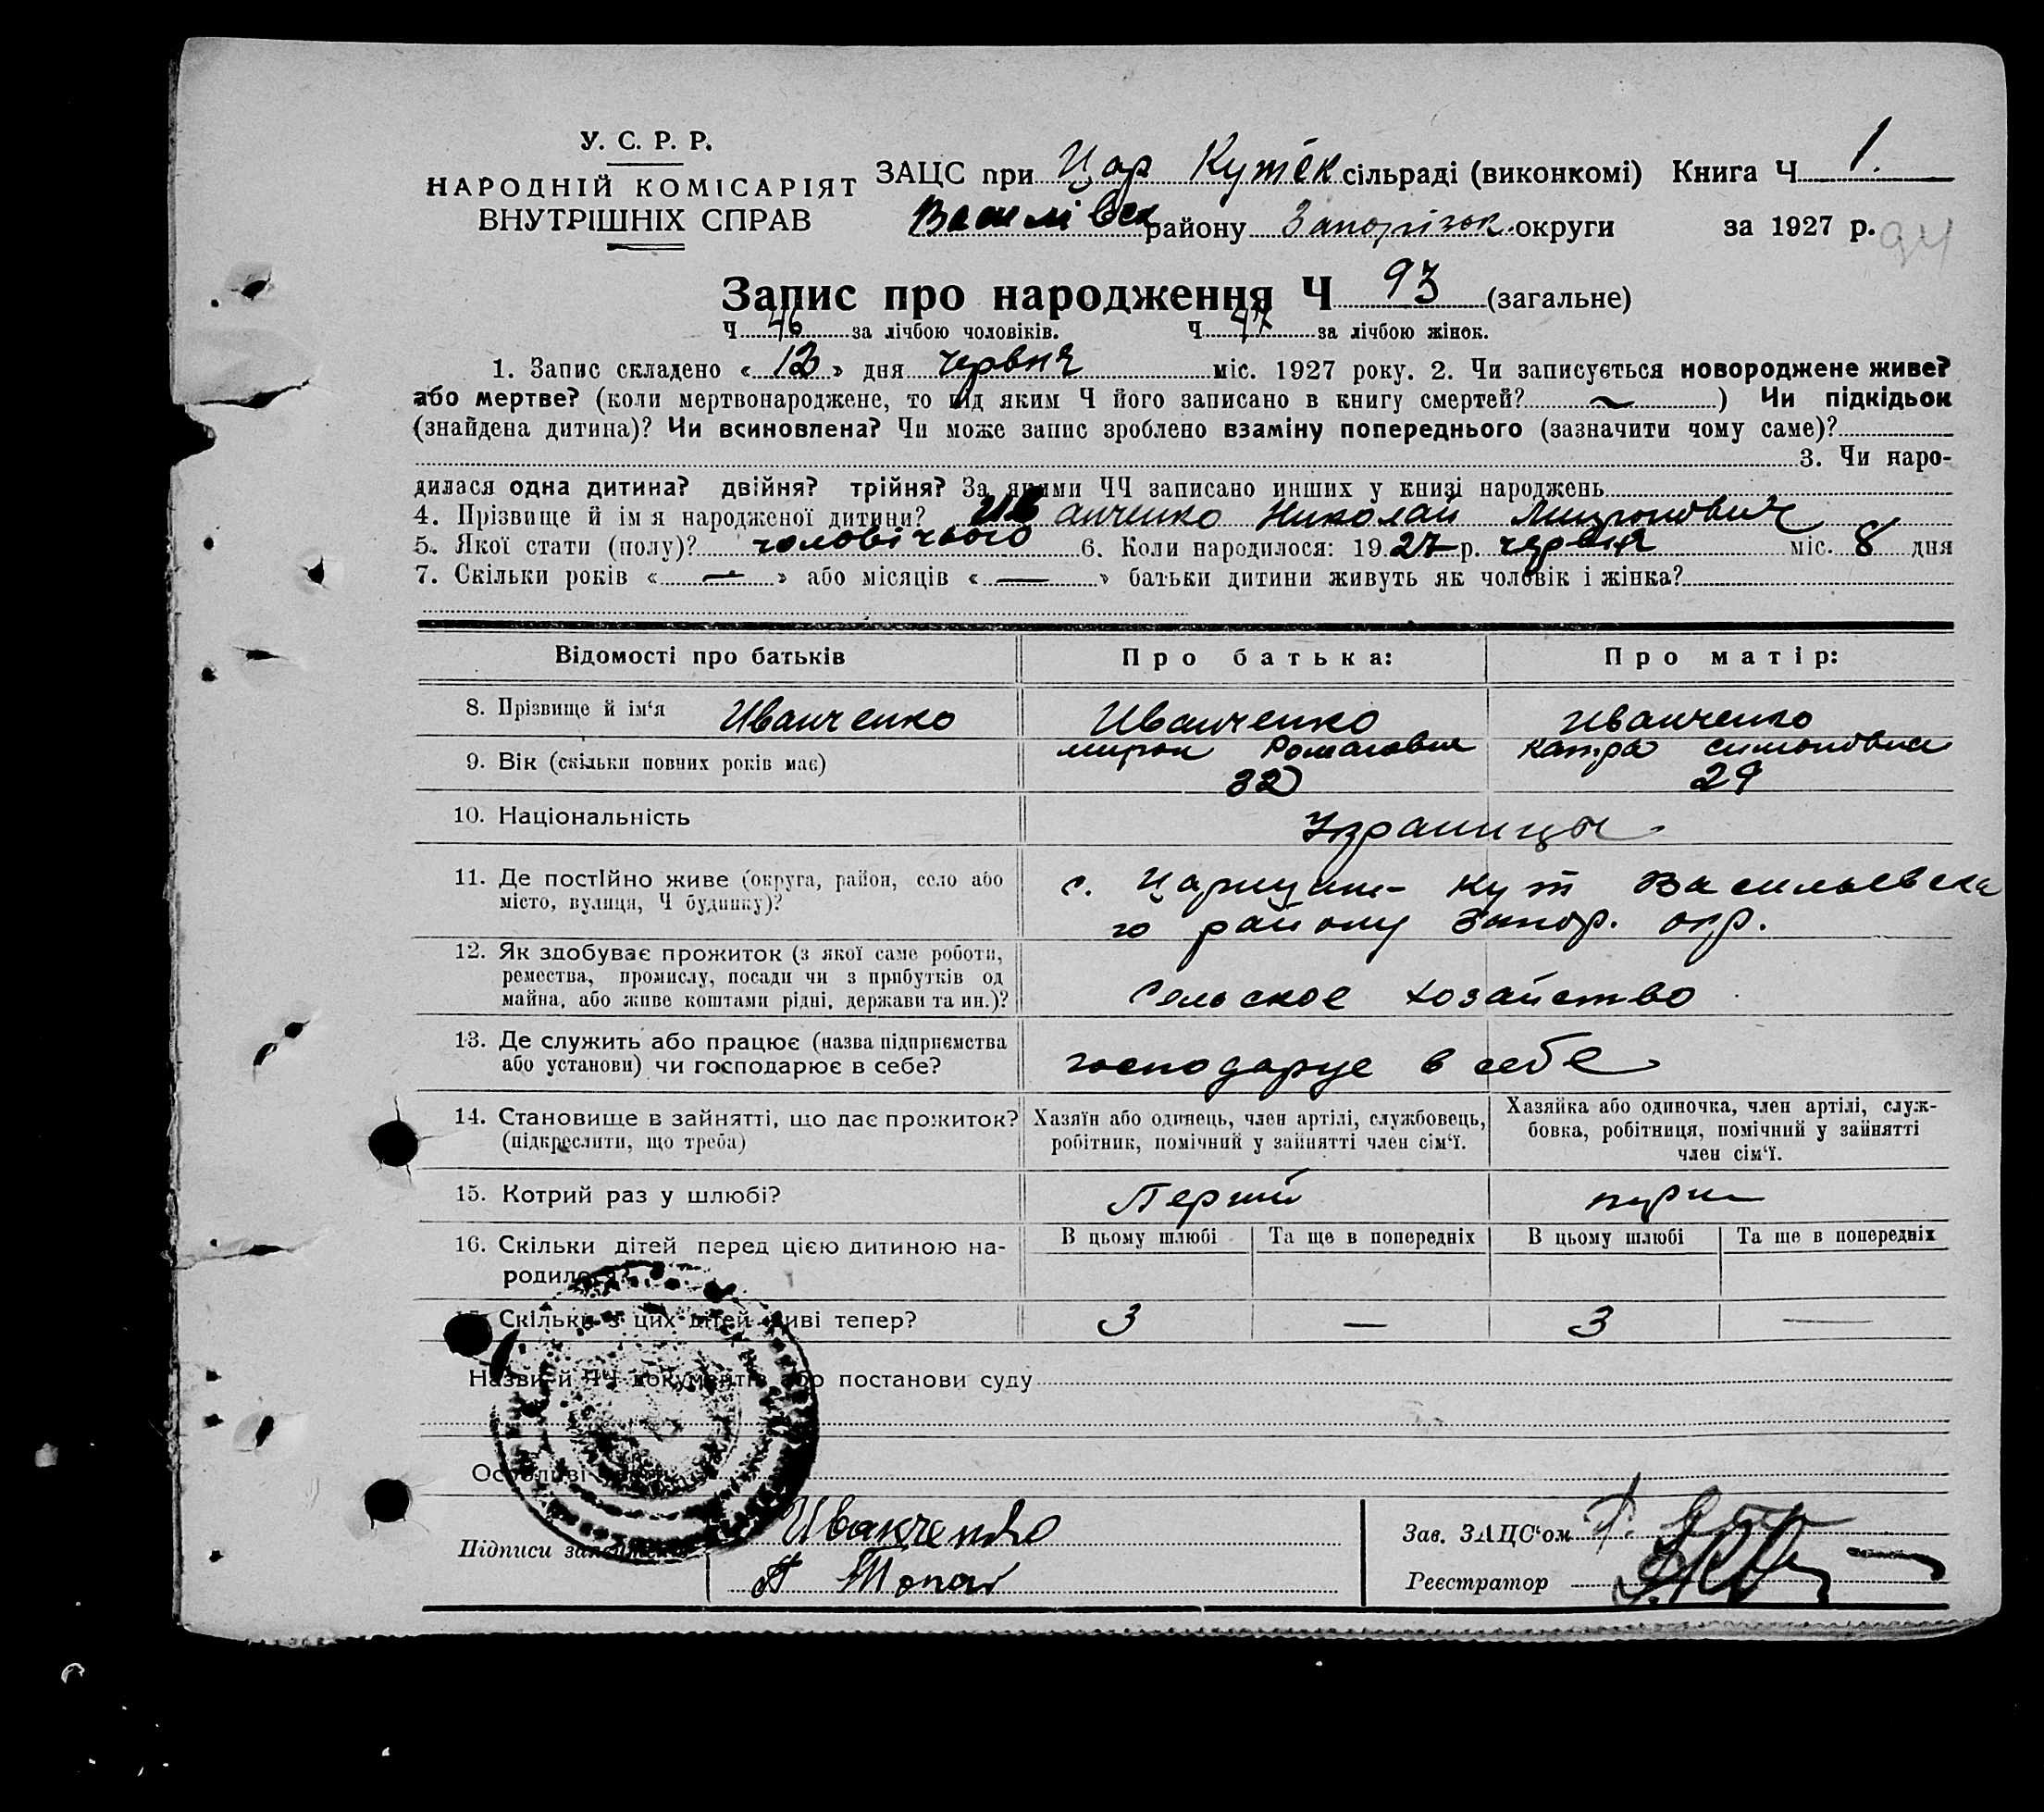 У. С. Р. Р.
НАРОДНІЙ КОМІСАРІЯТ
ВНУТРІШНІХ СПРАВ
ЗАЦС при Цар Кутёк сільраді (виконкомі) Книга Ч 1.
Василівск району Запорізьк. округи за 1927 р. 94
Запис про народження Ч 93 (загальне)
Ч 46 за лічбою чоловіків. Ч 47 за лічбою жінок.
1. Запис складено « 13 » дня червня міс. 1927 року. 2. Чи записується новороджене живе?
або мертве? (коли мертвонароджене, то під яким Ч його записано в книгу смертей? ) Чи підкідьок
(знайдена дитина)? Чи всиновлена? Чи може запис зроблено взаміну попереднього (зазначити чому саме)?
3. Чи наро-
дилася одна дитина? двійня? трійня? За якими ЧЧ записано инших у книзі народжень
4. Прізвище й ім я народженої дитини? Иванченко Николай Миронович
5. Якої стати (полу)? чоловічого 6. Коли народилося: 1927 р. червня міс. 8 дня
7. Скільки років « — » або місяців « — » батьки дитини живуть як чоловік і жінка?
Відомості про батьків Про батька: Про матір:
8. Прізвище й ім‘я Иванченко Иванченко Иванченко
мирон Романович катра симоновна
9. Вік (скільки повних років має) 32 29
10. Національність Украинцы
11. Де постійно живе (округа, район, село або
місто, вулиця, Ч будинку)?
с. Царицин- Кут Васильевска
го району Запор. окр.
12. Як здобуває прожиток (з якої саме роботи,
ремества, промислу, посади чи з прибутків од
майна, або живе коштами рідні, держави та ин.)?
Сельское хозайство
13. Де служить або працює (назва підприємства
або установи) чи господарює в себе?
господарує в себе
14. Становище в зайнятті, що дає прожиток?
(підкреслити, що треба)
Хазяїн або одинець, член артілі, службовець,
робітник, помічний у зайнятті член сім‘ї.
Хазяйка або одиночка, член артілі, служ-
бовка, робітниця, помічний у зайнятті
член сім‘ї.
15. Котрий раз у шлюбі? Перший перш
16. Скільки дітей перед цією дитиною на-
родилося?
В цьому шлюбі Та ще в попередніх В цьому шлюбі Та ще в попередніх
17. Скільки з цих дітей живі тепер? 3 — 3 —
Назви й ЧЧ документів або постанови суду
Особливі
Підписи
Иванченко
Зав. ЗАЦС‘ом
Реєстратор